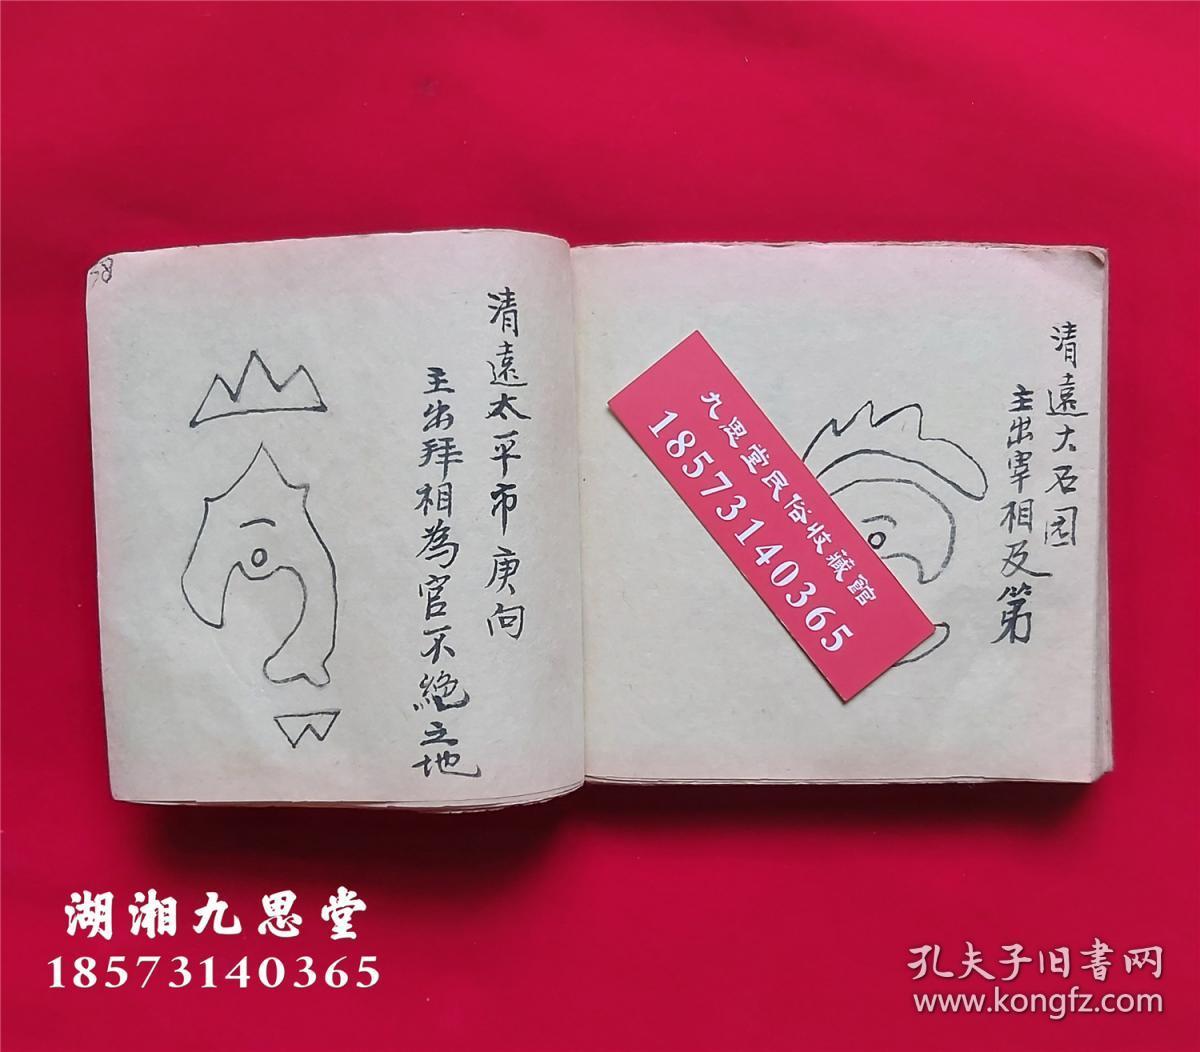 清遠大石园
主出宰相及第
清遠太平市庚向
主出拜相為官不絶之地
58
九思堂民俗收藏館
18573140365
湖湘九思堂
18573140365
孔夫子旧書网
www.kongfz.com